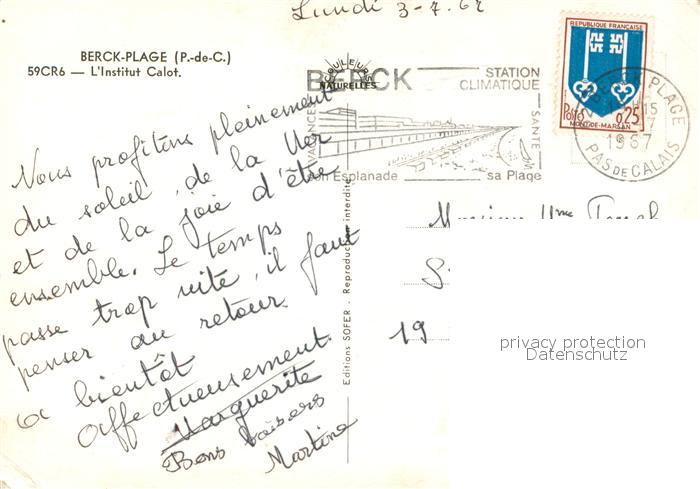 Lundi 3-7.67
BERCK-PLAGE (P.-de-C.)
59CR6 — L'Institut Calot.
COULEURS
NATURELLES
BERCK
STATION
CLIMATIQUE
VACANCES
SANTÉ
son Esplanade
sa Plage
REPUBLIQUE FRANÇAISE
Poste 0,25
MONT-DE-MARSAN
BERCK PLAGE
15
1967
PAS DE CALAIS
Nous profitons pleinement
du soleil, de la Mer
et de la joie d'être
ensemble. Le temps
passe trop vite, il faut
penser au retour.
a bientôt
Affectueusement.
Marguerite
Bons baisers
Martine
Editions SOFER. Reproduction interdite
Monsieur Mme
19
privacy protection
Datenschutz